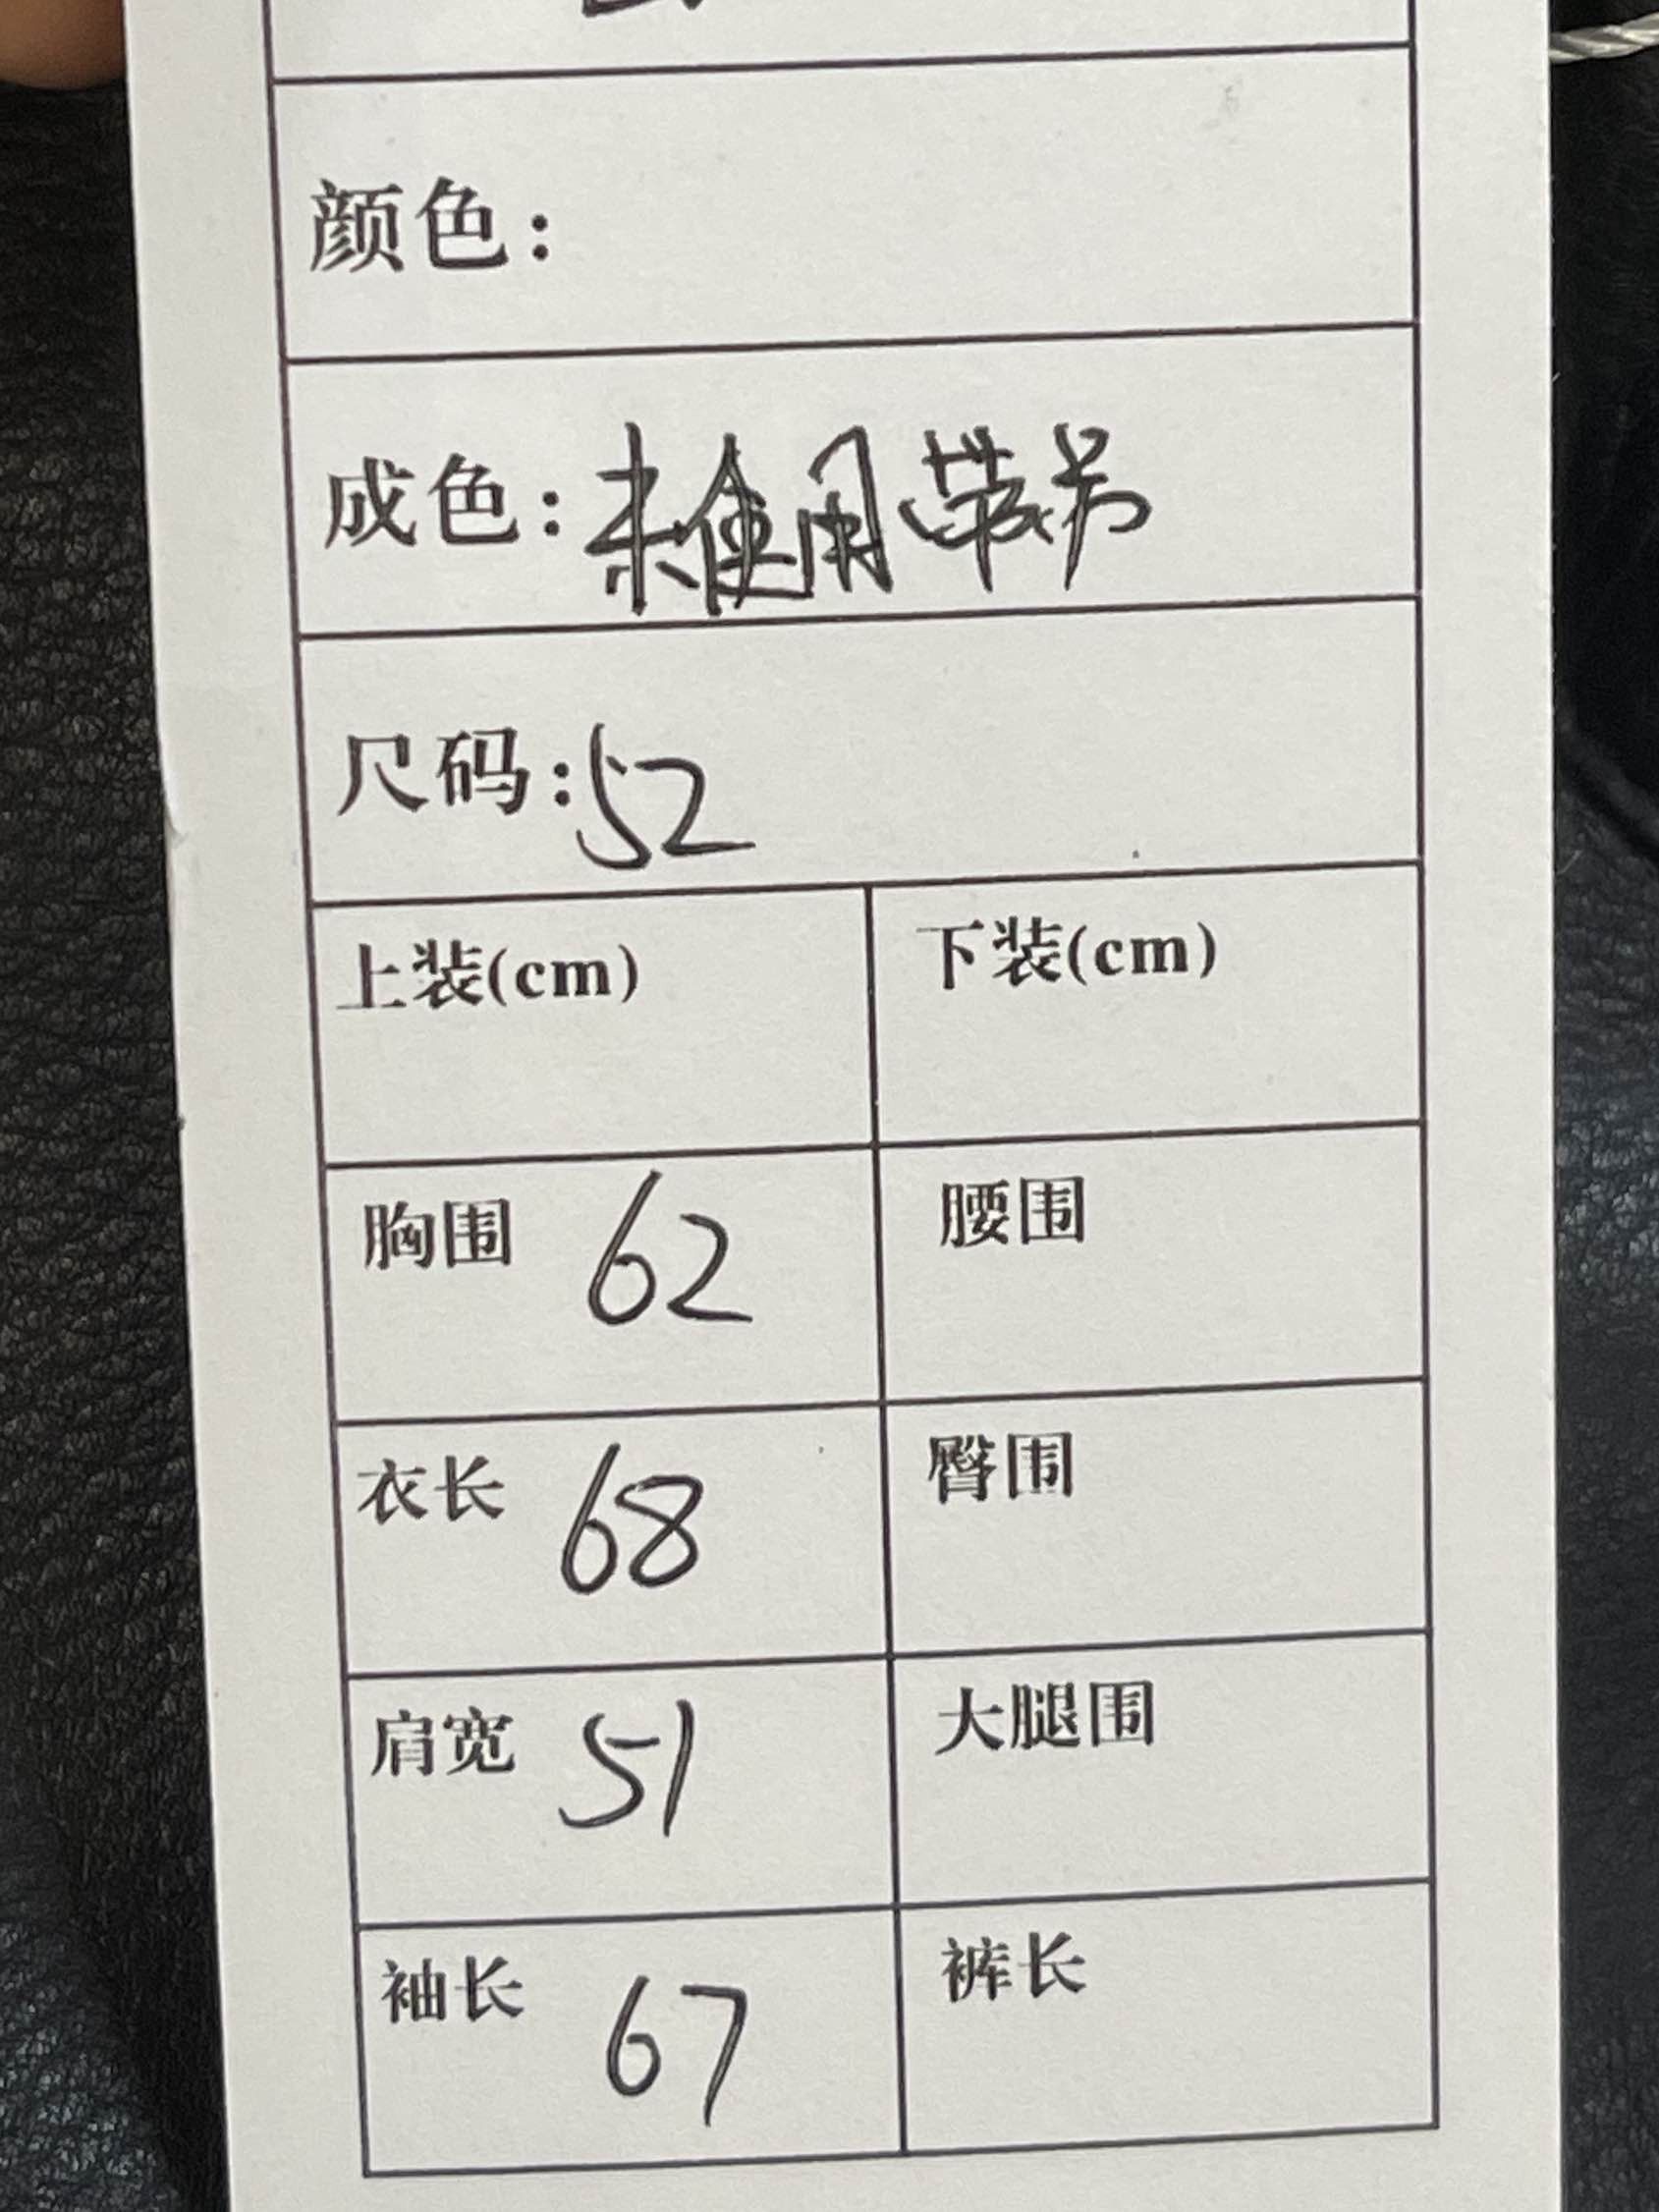 颜色：
成色：未使用带
尺码：52
上装(cm) 下装(cm)
胸围 62 腰围
衣长 68 臀围
肩宽 51 大腿围
袖长 67 裤长